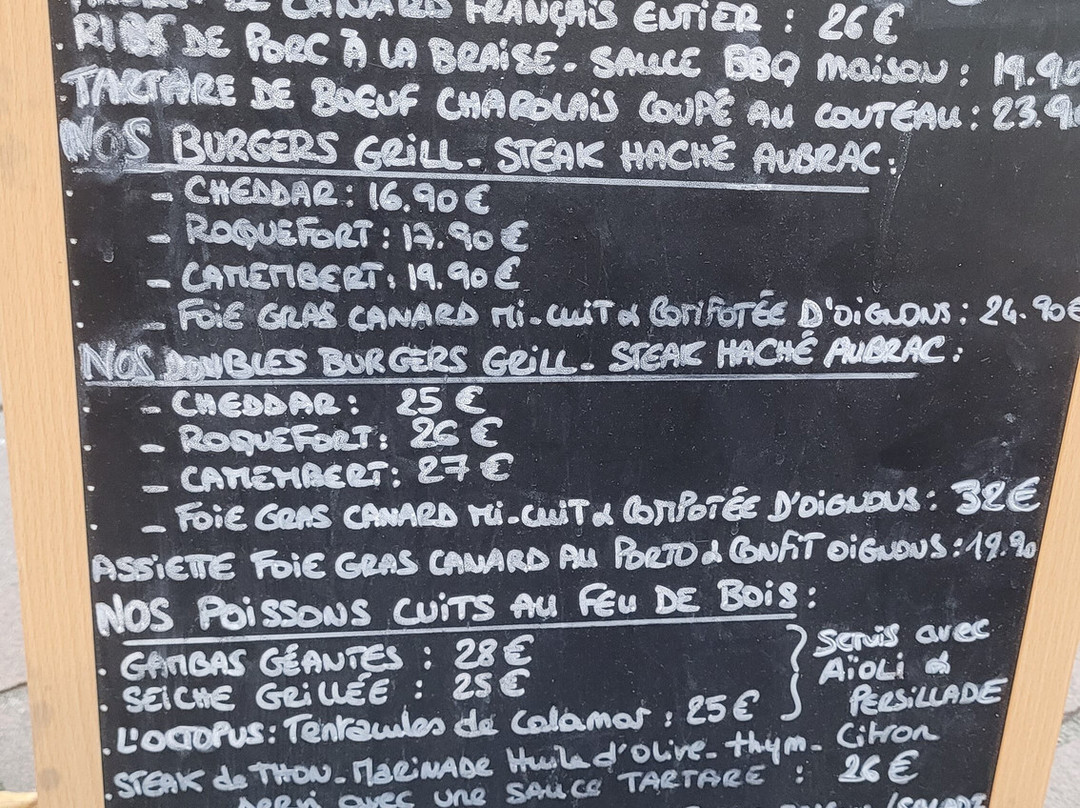 DE CANARD FRANÇAIS ENTIER : 26€
. RIBS DE PORC À LA BRAISE - SAUCE BBQ MAISON : 19.90
. TARTARE DE BOEUF CHAROLAIS COUPÉ AU COUTEAU : 23.90
NOS BURGERS GRILL - STEAK HACHÉ AUBRAC :
- CHEDDAR : 16.90€
- ROQUEFORT : 17.90€
- CAMEMBERT : 19.90€
- FOIE GRAS CANARD MI-CUIT & COMPOTÉE D'OIGNONS : 24.90€
NOS DOUBLES BURGERS GRILL - STEAK HACHÉ AUBRAC :
- CHEDDAR : 25€
- ROQUEFORT : 26€
- CAMEMBERT : 27€
- FOIE GRAS CANARD MI-CUIT & COMPOTÉE D'OIGNONS : 32€
ASSIETTE FOIE GRAS CANARD AU PORTO & CONFIT OIGNONS : 19.90
NOS POISSONS CUITS AU FEU DE BOIS :
. GAMBAS GÉANTES : 28€
. SEICHE GRILLÉE : 25€
Servis avec
AÏOLI &
PERSILLADE
. L'OCTOPUS : Tentacules de Calamar : 25€
. STEAK de THON - MARINADE Huile d'Olive - thym - Citron
servi avec une SAUCE TARTARE : 26€